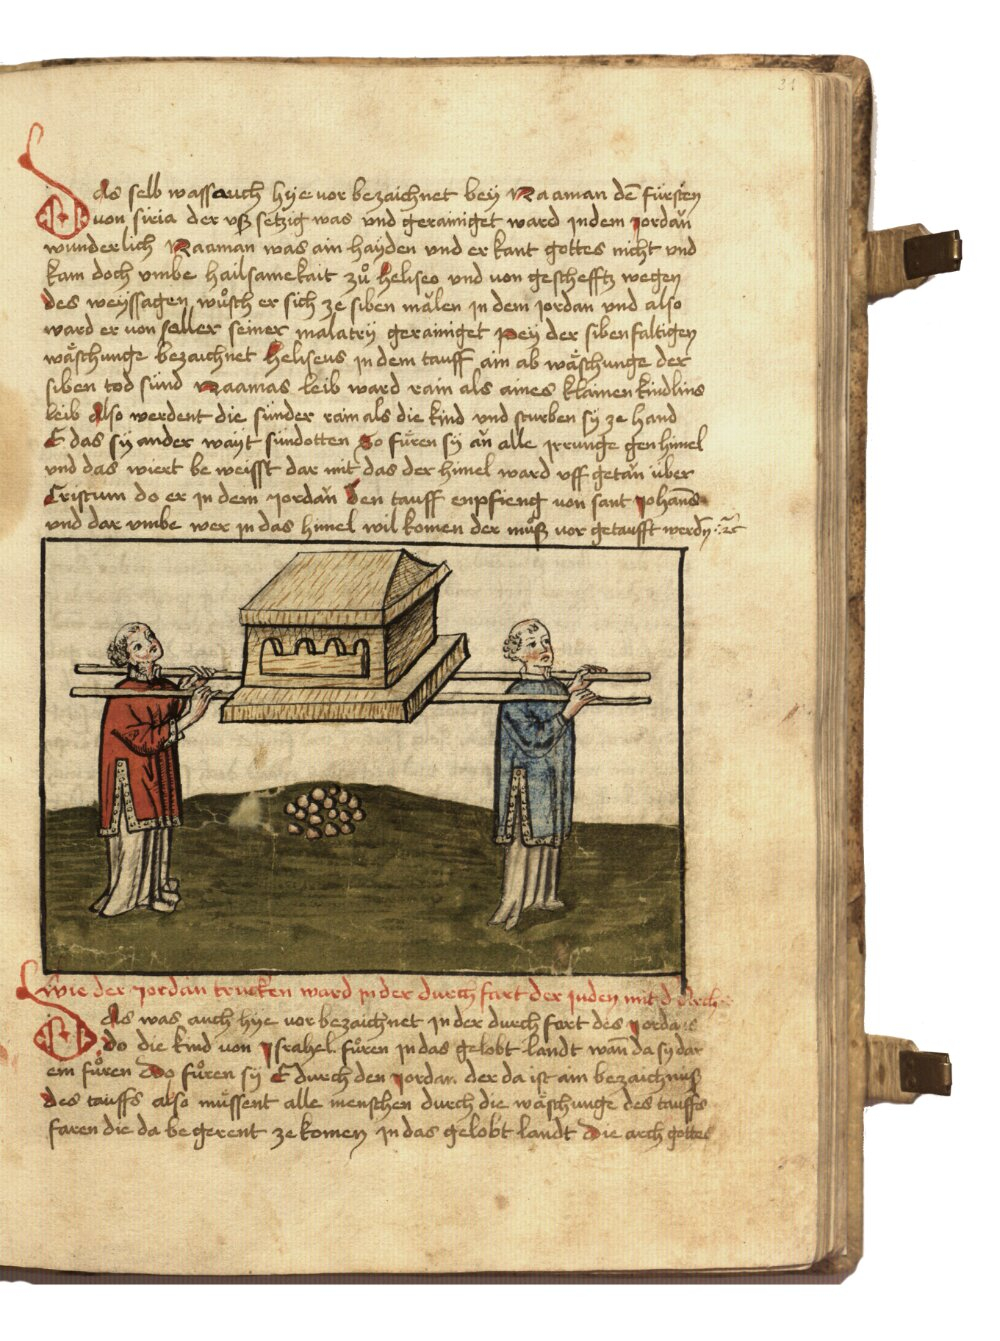 31
Das selb was auch hÿe vor bezaichnet beÿ Naaman dē fürsten
von siria der vß setzig was vnd gerainiget ward in dem jordān
wunderlich Naaman was ain haÿden vnd er kant gottes nicht vnd
kam doch vmbe hailsamekait zů heliseo vnd von gescheffts wegen
des weÿssagen wůsch er sich ze siben mǎlen in dem jordan vnd also
ward er von seiner malatrÿ gerainiget Peÿ der sibenfaltigen
wäschunge bezaichnet heliseus in dem tauff ain ab wäschunge der
siben tod sünd Naamās leib ward rain als aines klainen kindlins
leib Also werdent die sünder rain als die kind vnd sturben sÿ ze hand
E das sÿ ander waÿt sündotten So füren sÿ ǎn alle jrrunge gen himel
vnd das wiert be weisst dar mit das der himel ward vff getǎn über
Cristum do er in dem jordǎn den tauff enpfieng von sant johāns
vnd dar vmbe wer in das himel wil komen der můß vor getaufft werdn̄
wie der jordǎn trucken ward in der durch fart der juden mit d Arch
Das was auch hÿe vor bezaichnet in der durch fort des jordans
do die kind von jsrahel fůren in das gelobt landt wān da sÿ dar
ein fůren Do fůren sÿ E durch den jordan. der da ist ain bezaichnuß
des tauffs also müssent alle menschen durch die wäschunge des tauffs
faren die da be gerent ze komen in das gelobt landt Die arch gottes